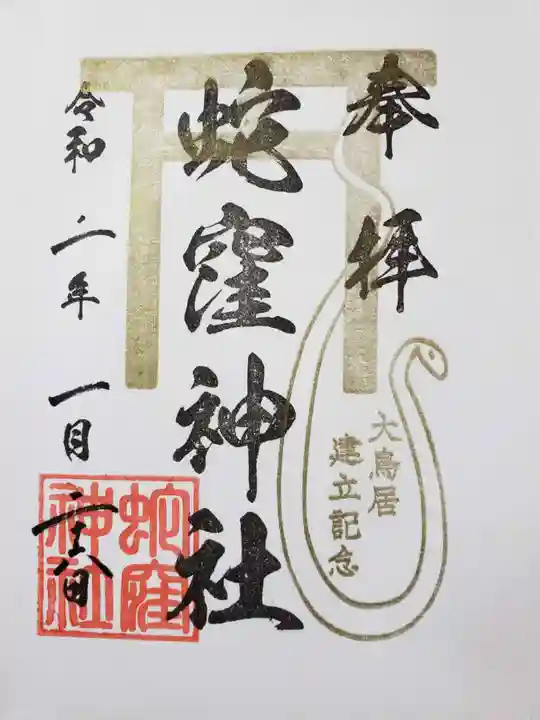 奉拝
大鳥居
建立記念
蛇窪神社
蛇窪
神社
令和二年一月二十六日